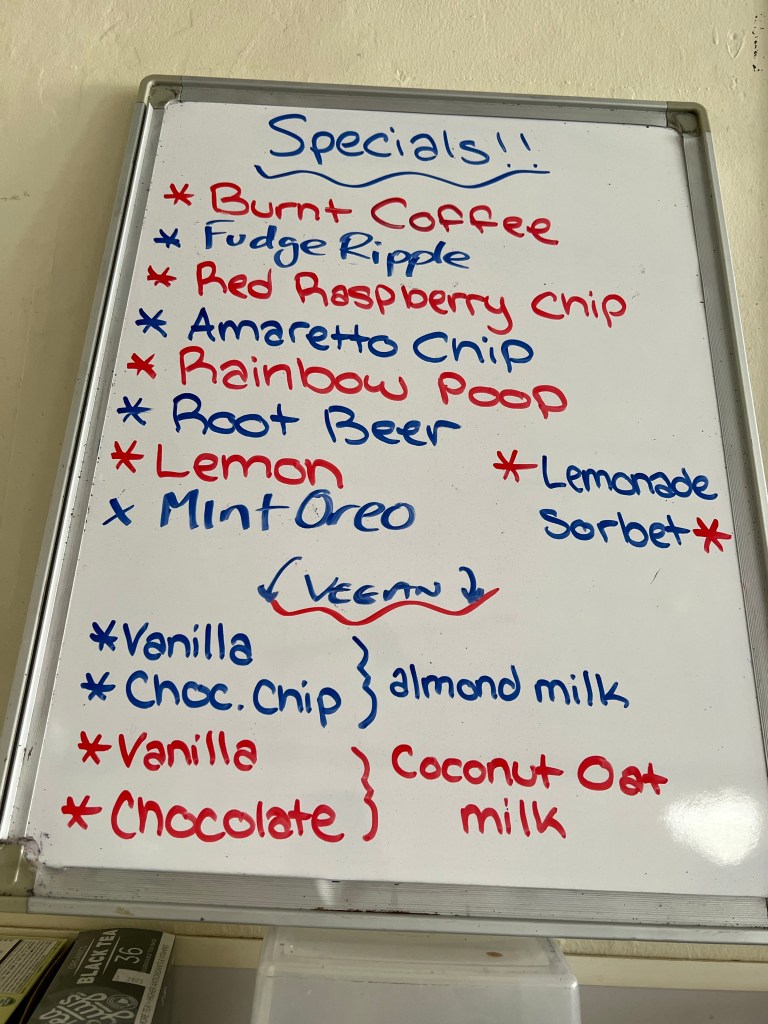 Specials!!
* Burnt Coffee
* Fudge Ripple
* Red Raspberry Chip
* Amaretto Chip
* Rainbow Poop
* Root Beer
* Lemon
x Mint Oreo
* Lemonade
Sorbet *
VEGAN
* Vanilla
* Choc. Chip
} almond milk
* Vanilla
* Chocolate
} Coconut Oat
milk
BLACK TEA
36